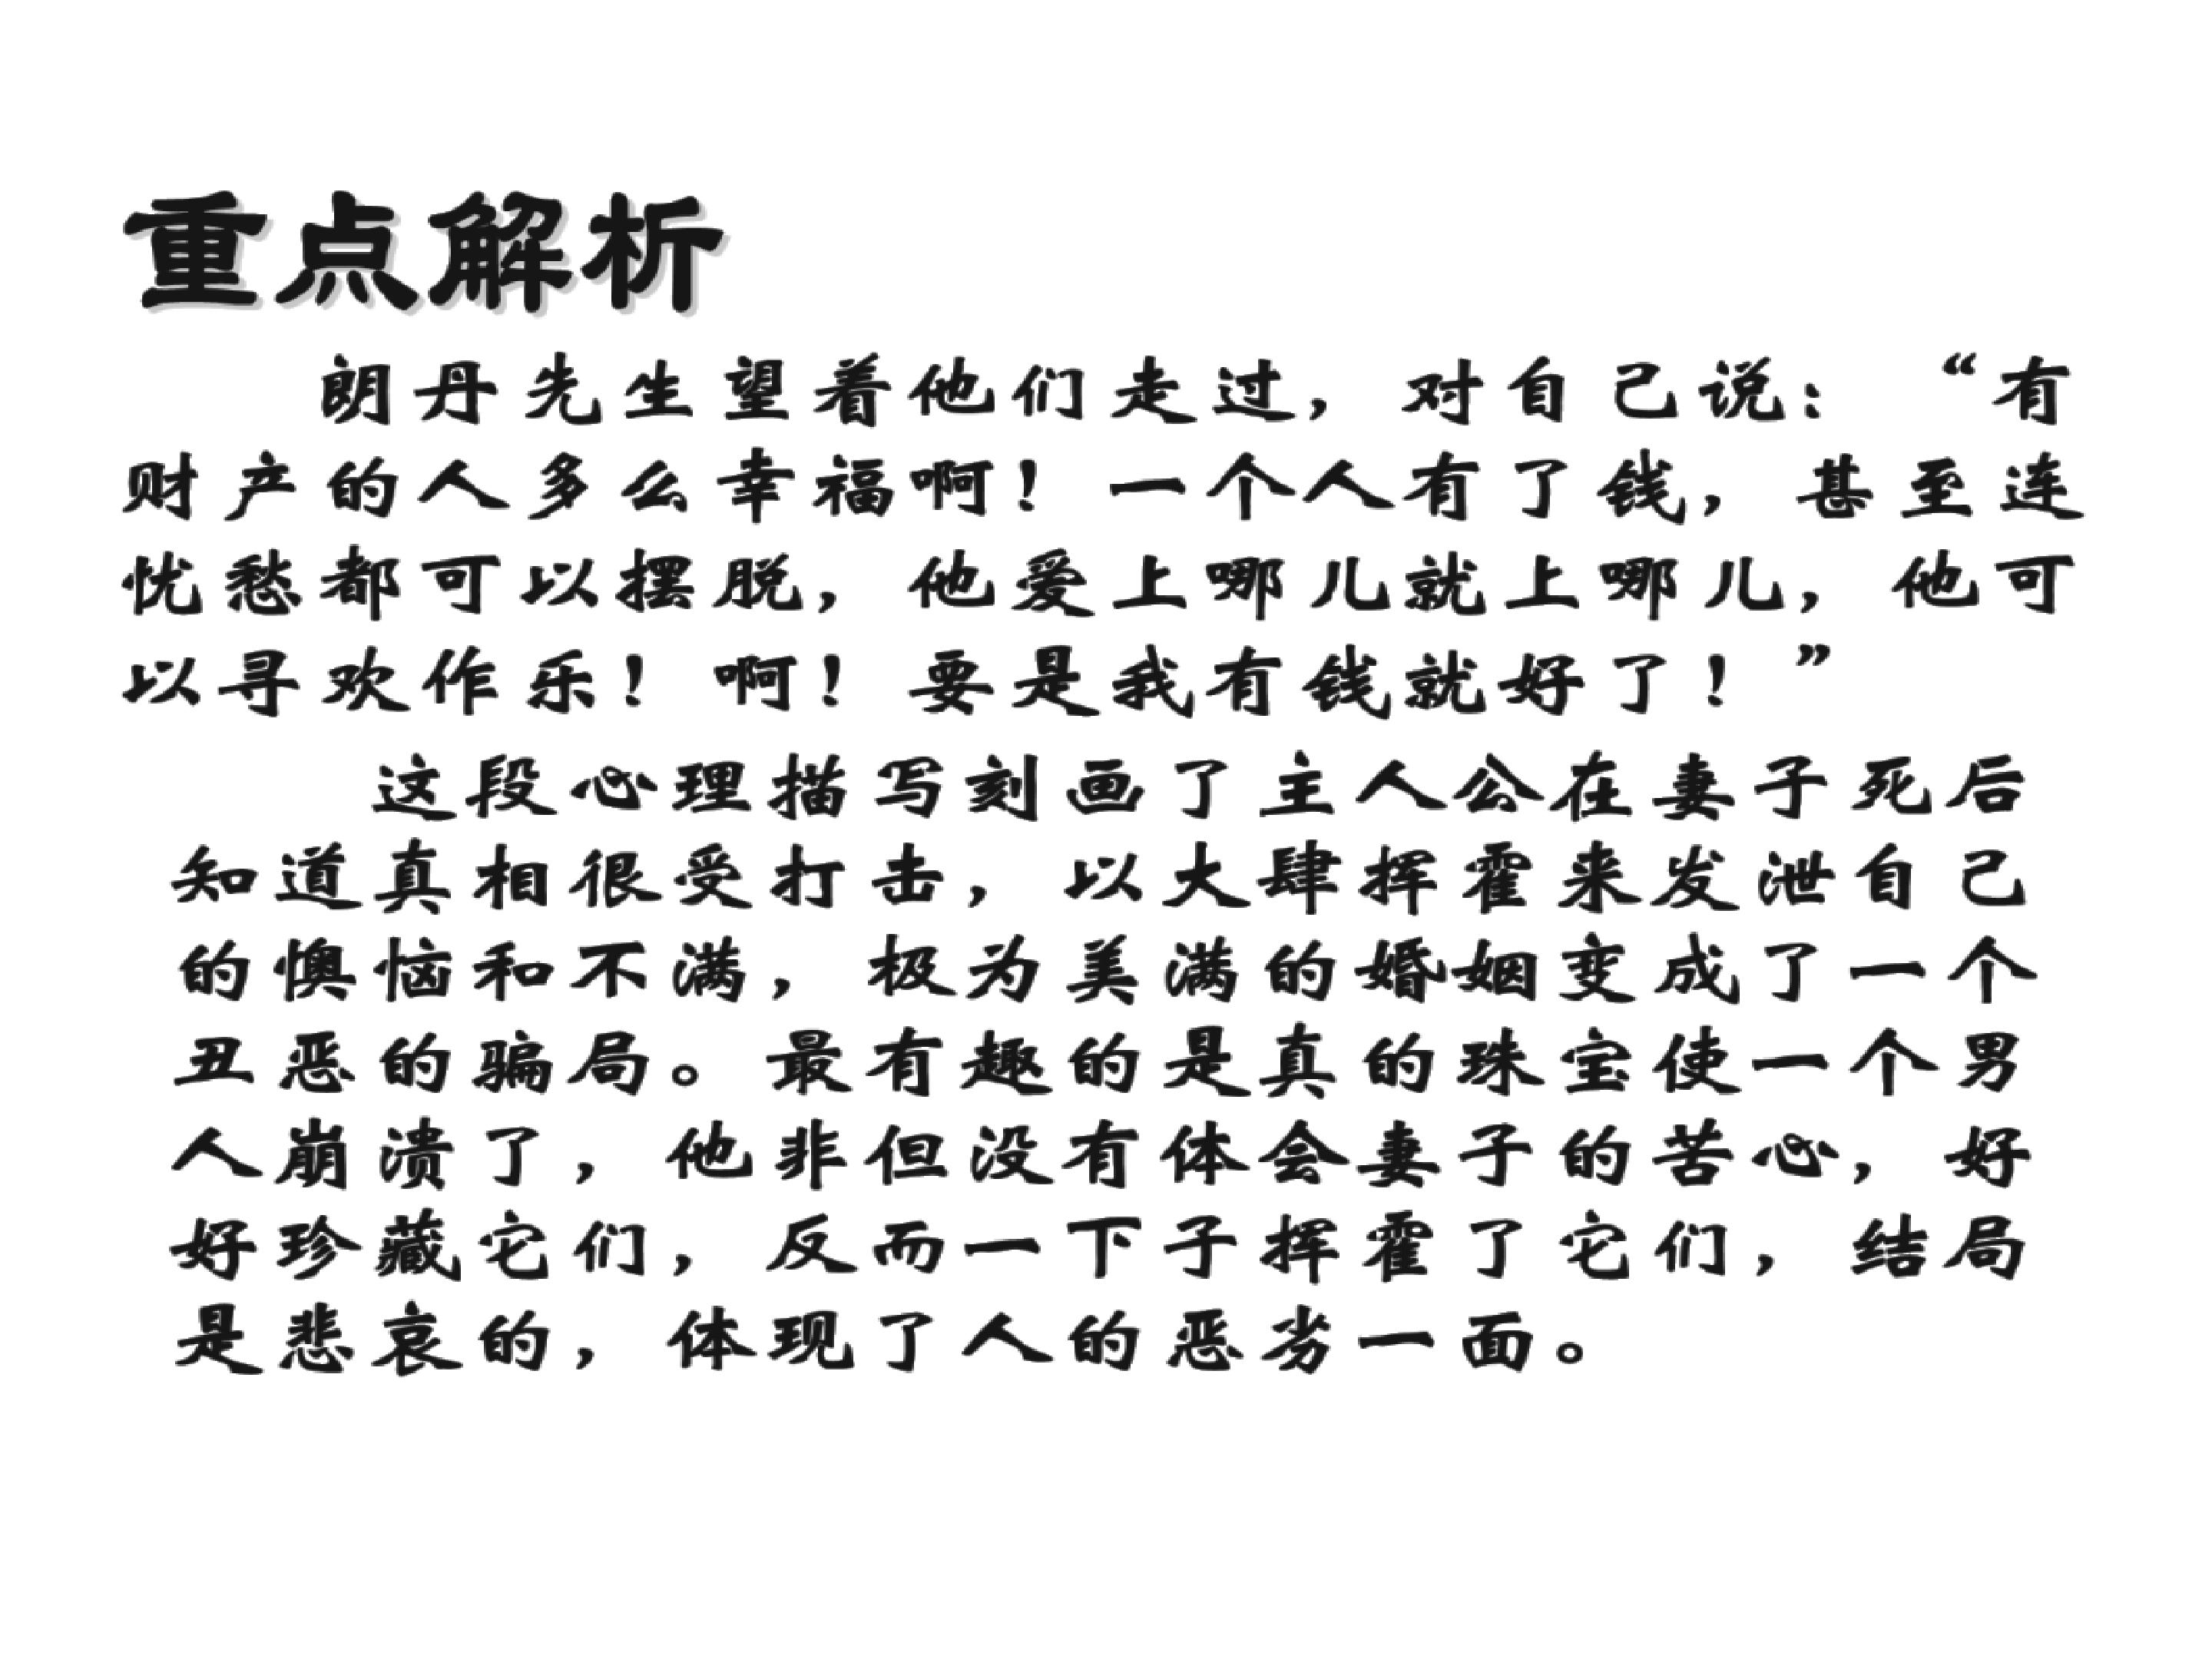 重点解析
朗丹先生望着他们走过，对自己说：“有
财产的人多么幸福啊！一个人有了钱，甚至连
忧愁都可以摆脱，他爱上哪儿就上哪儿，他可
以寻欢作乐！啊！要是我有钱就好了！”
这段心理描写刻画了主人公在妻子死后
知道真相很受打击，以大肆挥霍来发泄自己
的懊恼和不满，极为美满的婚姻变成了一个
丑恶的骗局。最有趣的是真的珠宝使一个男
人崩溃了，他非但没有体会妻子的苦心，好
好珍藏它们，反而一下子挥霍了它们，结局
是悲哀的，体现了人的恶劣一面。